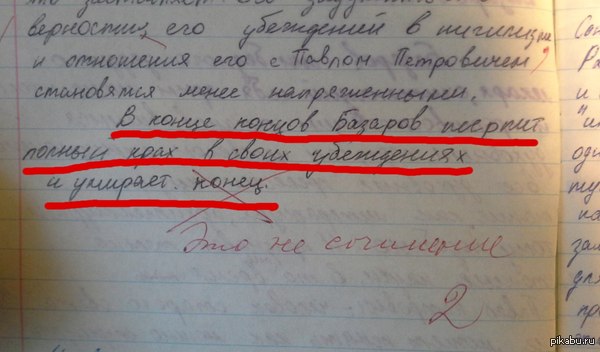 заставляет его задуматься о
верности его убеждений в нигилизме
и отношения его с Павлом Петровичем
становятся менее напряженными.
В конце концов Базаров терпит
полный крах в своих убеждениях
и умирает. конец.
Это не сочинение
2
pikabu.ru